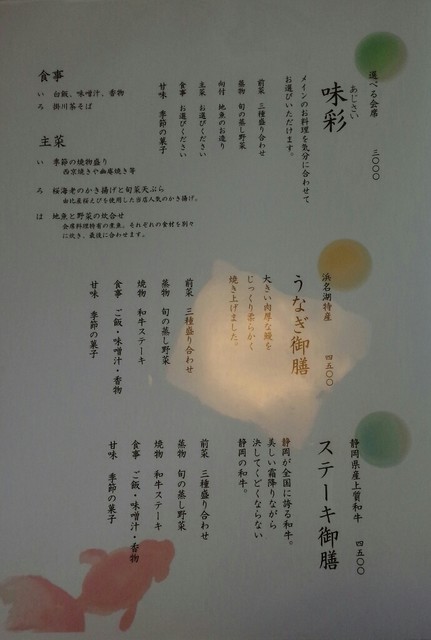 選べる会席
味彩
あじさい
三〇〇〇
メインのお料理を気分に合わせて
お選びいただけます。
前菜 三種盛り合わせ
蒸物 旬の蒸し野菜
向付 地魚のお造り
主菜 お選びください
食事 お選びください
甘味 季節の菓子
食事
い 白飯、味噌汁、香物
ろ 掛川茶そば
主菜
い 季節の焼物盛り
西京焼きや幽庵焼き等
ろ 桜海老のかき揚げと旬菜天ぷら
由比産桜えびを使用した当店人気のかき揚げ。
は 地魚と野菜の炊合せ
会席料理特有の煮魚。それぞれの食材を別々
に炊き、最後に合わせます。
浜名湖特産
うなぎ御膳
四五〇〇
大きい肉厚な鰻を
じっくり柔らかく
焼き上げました。
前菜 三種盛り合わせ
蒸物 旬の蒸し野菜
焼物 和牛ステーキ
食事 ご飯・味噌汁・香物
甘味 季節の菓子
静岡県産上質和牛
ステーキ御膳
四五〇〇
静岡が全国に誇る和牛。
美しい霜降りながら
決してくどくならない
静岡の和牛。
前菜 三種盛り合わせ
蒸物 旬の蒸し野菜
焼物 和牛ステーキ
食事 ご飯・味噌汁・香物
甘味 季節の菓子